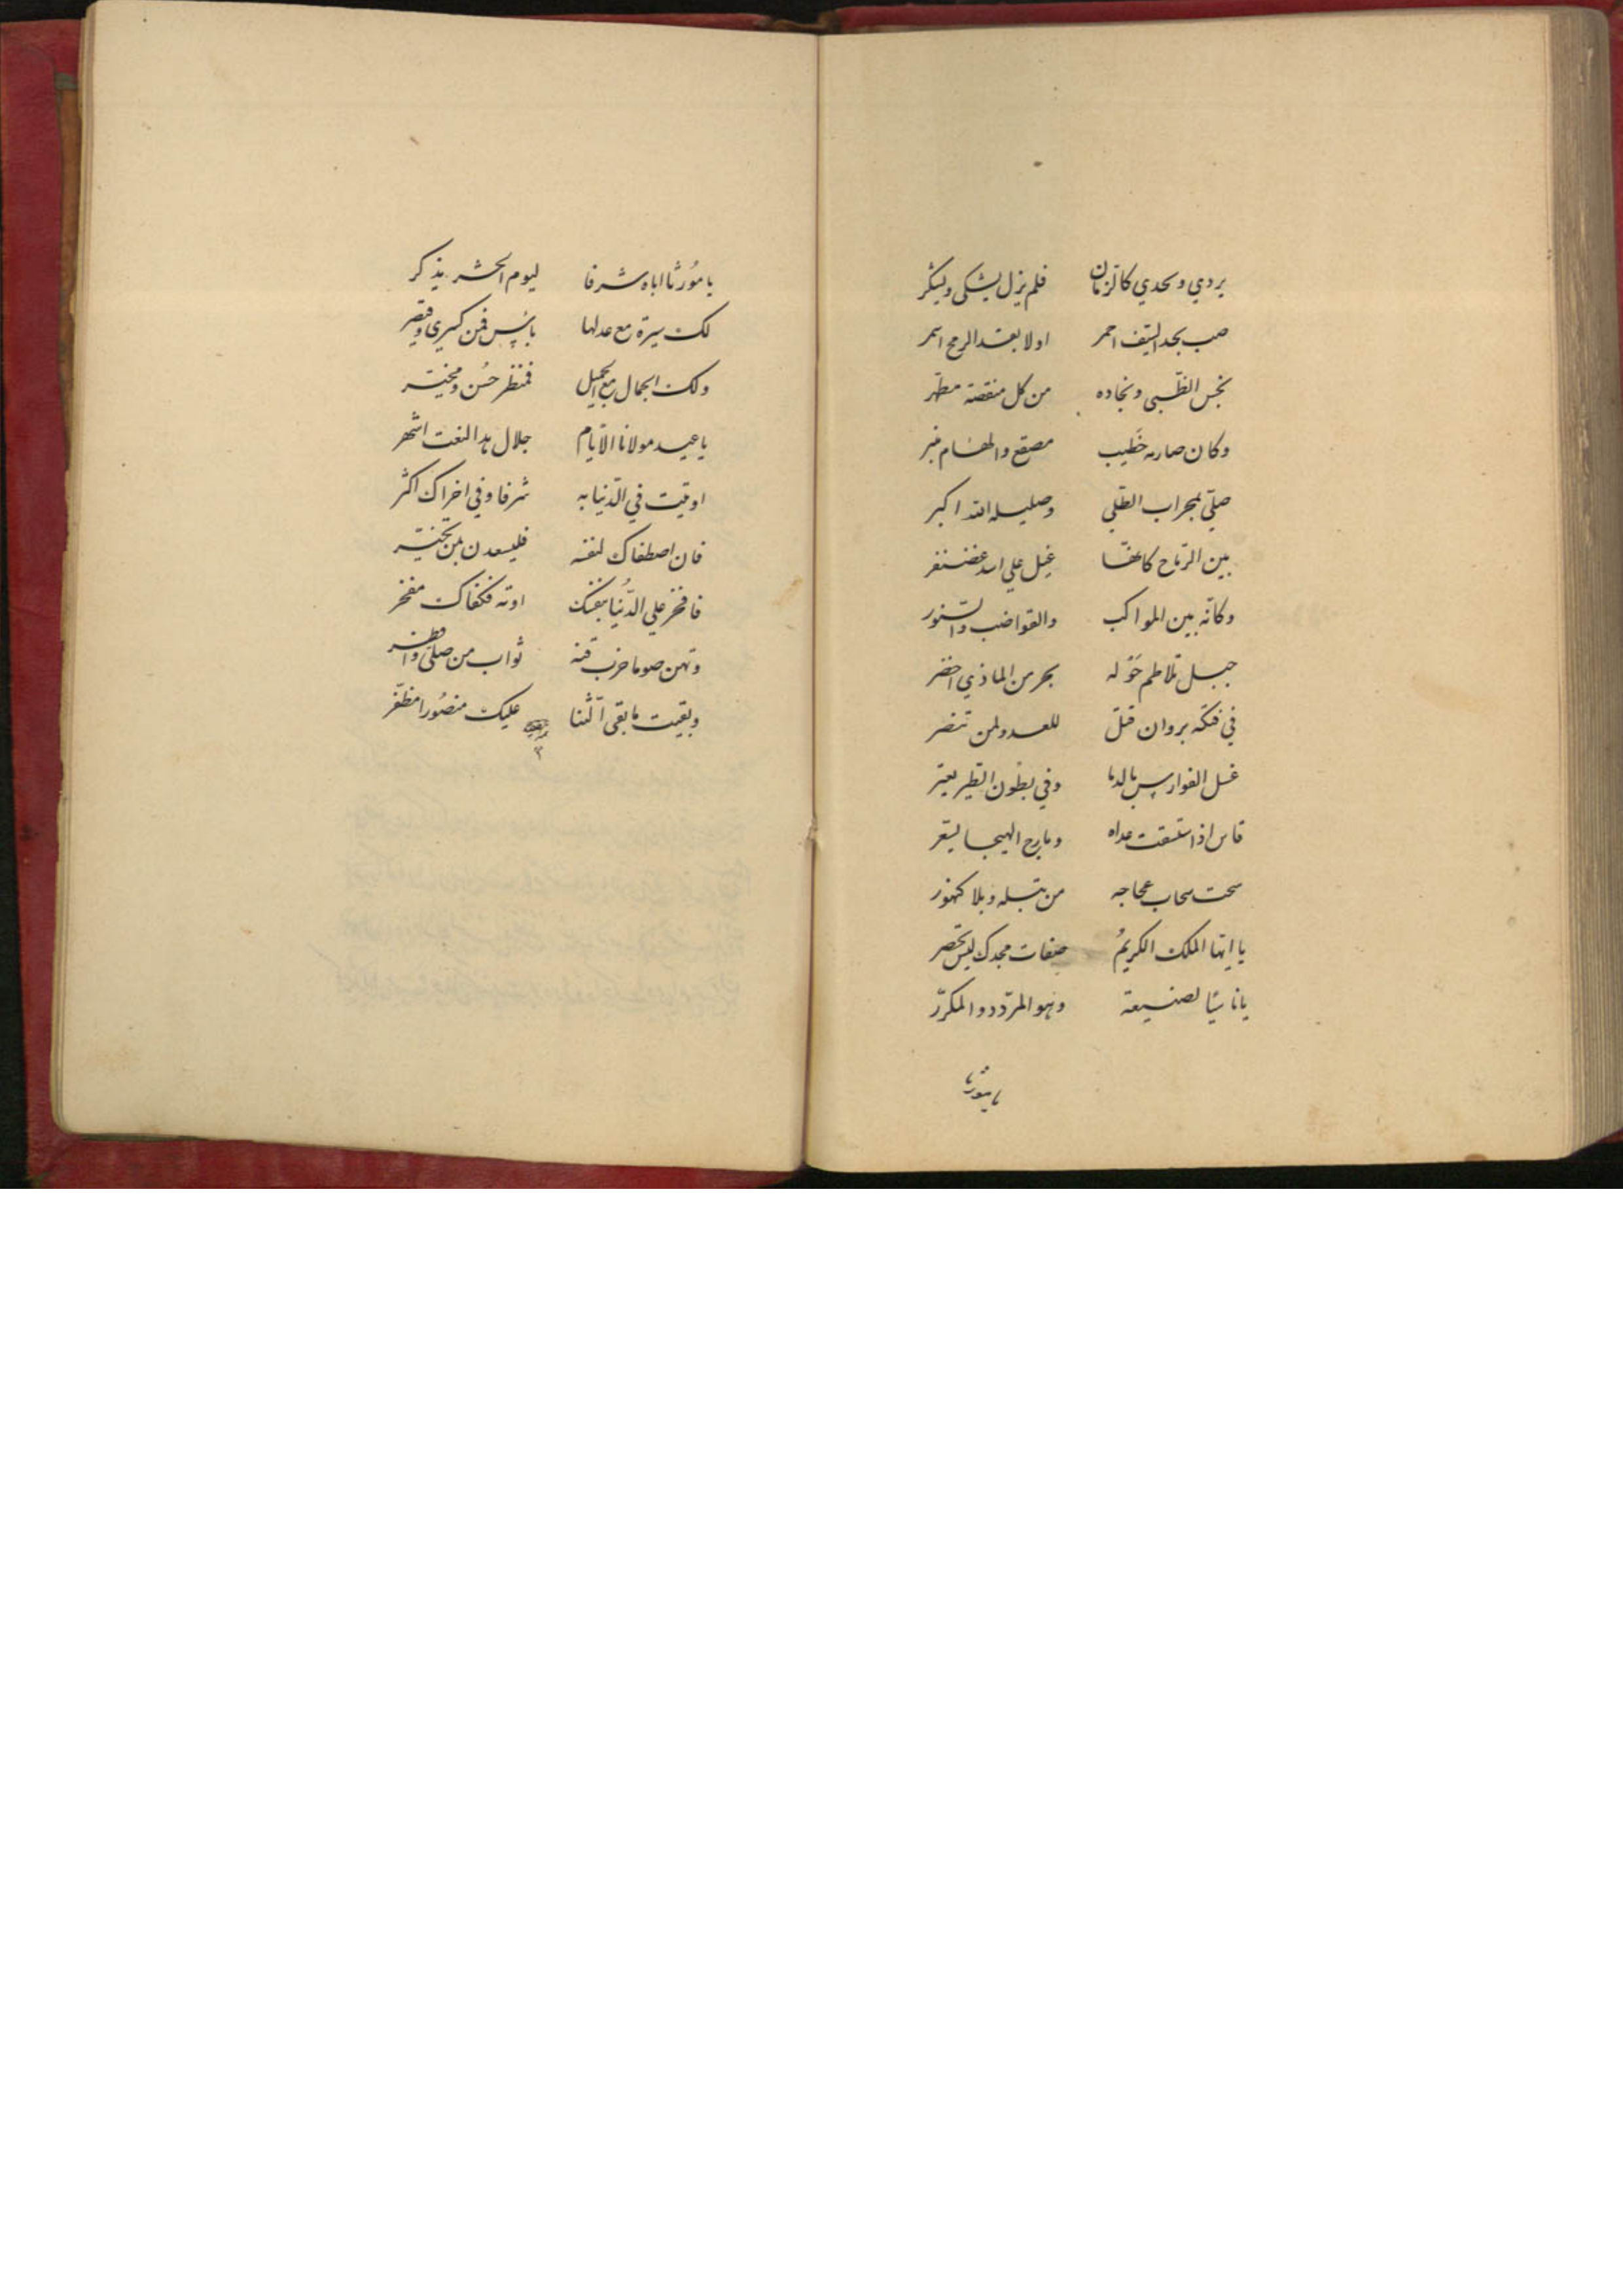 يردي ويجدي كالزمان فلم يزل يشكى ويشكر
صب بخد السيف احمر اولا بقد الرمح اسمر
نجس الظبى ونجاده من كل منقصة مطهر
وكان صارمه خطيب مصقع والهام منبر
صلّى بمحراب الطلى وصليله الله اكبر
بين الرماح كانها غيل على اسد غضنفر
وكانّه بين المواكب والقواضب والسنور
جبل تلاطم حَوله بحر من الماذي اخضر
في فتكه بروان قلّ للعدو لمن تنصر
غسل الفوارس بالدما وفي بطون الطير يعبر
قاس اذا استسقت عداه ومارج الهيجا يسعر
سحت سحاب عجاجه من نبله وبلا كنهور
يا ايها الملك الكريمُ صفات مجدك ليس تحصر
يا ناسيًا لصنيعة وهو المردّد والمكرّر
يا مورثا
يا مُورثا اباه شرفا ليوم الحشر يذكر
لك سيرة مع عدلها بأس فمن كسرى وقيصر
ولك الجمال مع الجميل فمنظر حُسن ومخبر
يا عيد مولانا الايام جلال هذا النعت اشهر
اوتيت في الدّنيا به شرفا وفي اخراك اكثر
فان اصطفاك لنفسه فليسعدن بمن تخير
فافخر على الدُّنيا بنفسك اوبه فكفاك مفخر
وتهن صوما حزت فيه ثواب من صلّى وافطر
وبقيت ما بقي الثنا عليك منصُورا مظفّر